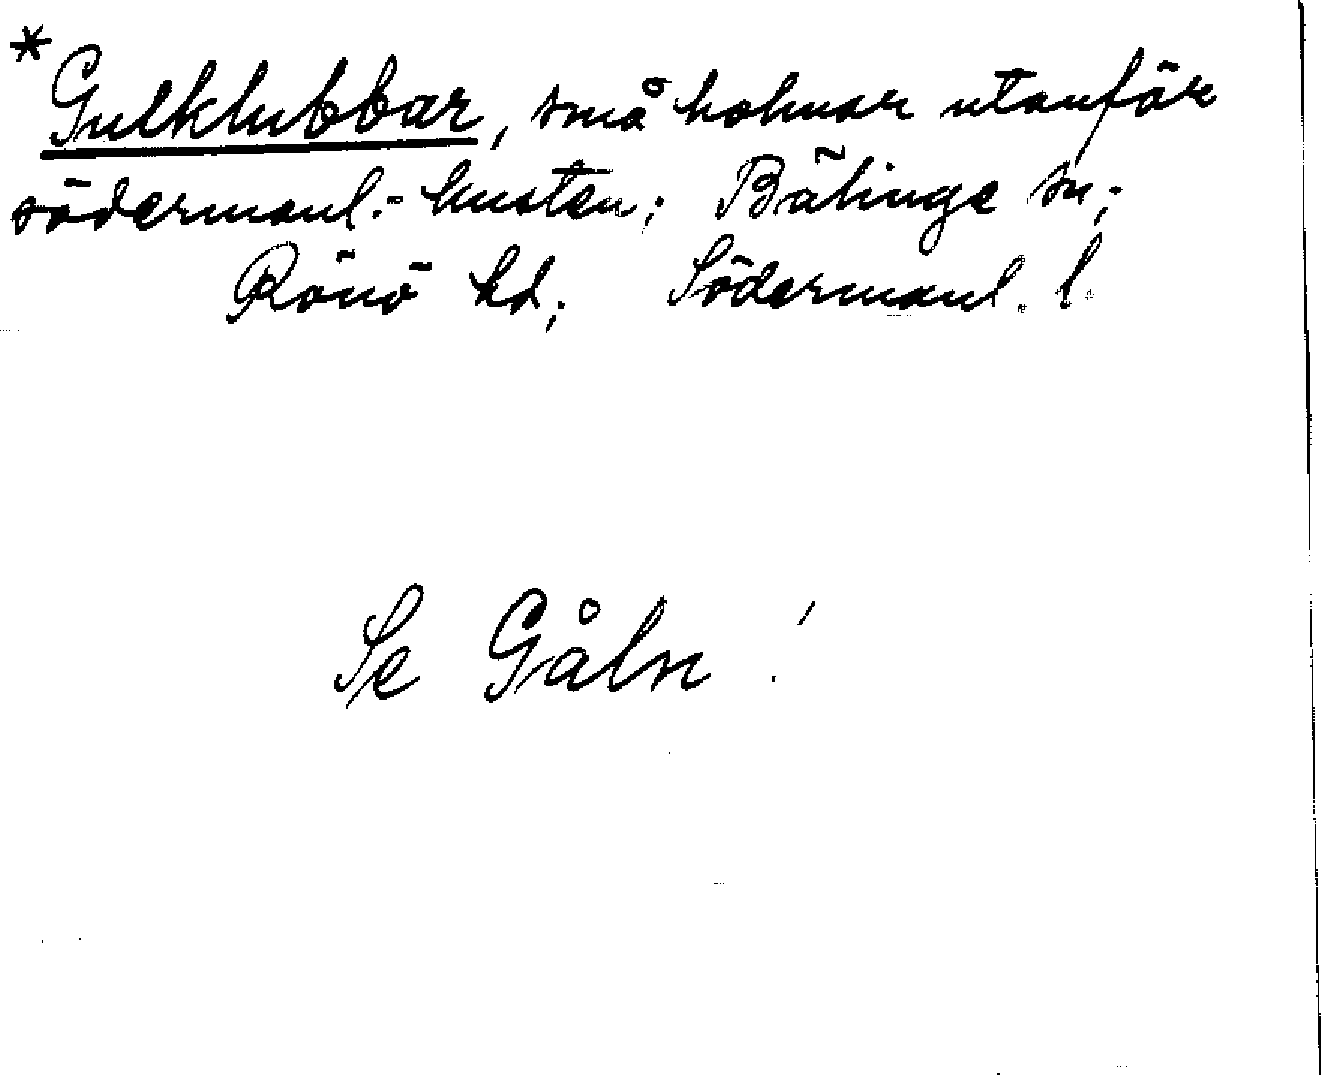 * Gulklubbar, små holmar utanför
södermanl.-kusten; Bälinge sn;
Rönö hd; Södermanl. l.
Se Gåln!